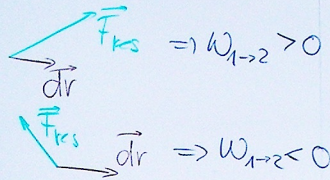 F⃗res ⇒ W1→2 > 0
d⃗r
F⃗res d⃗r ⇒ W1→2 < 0